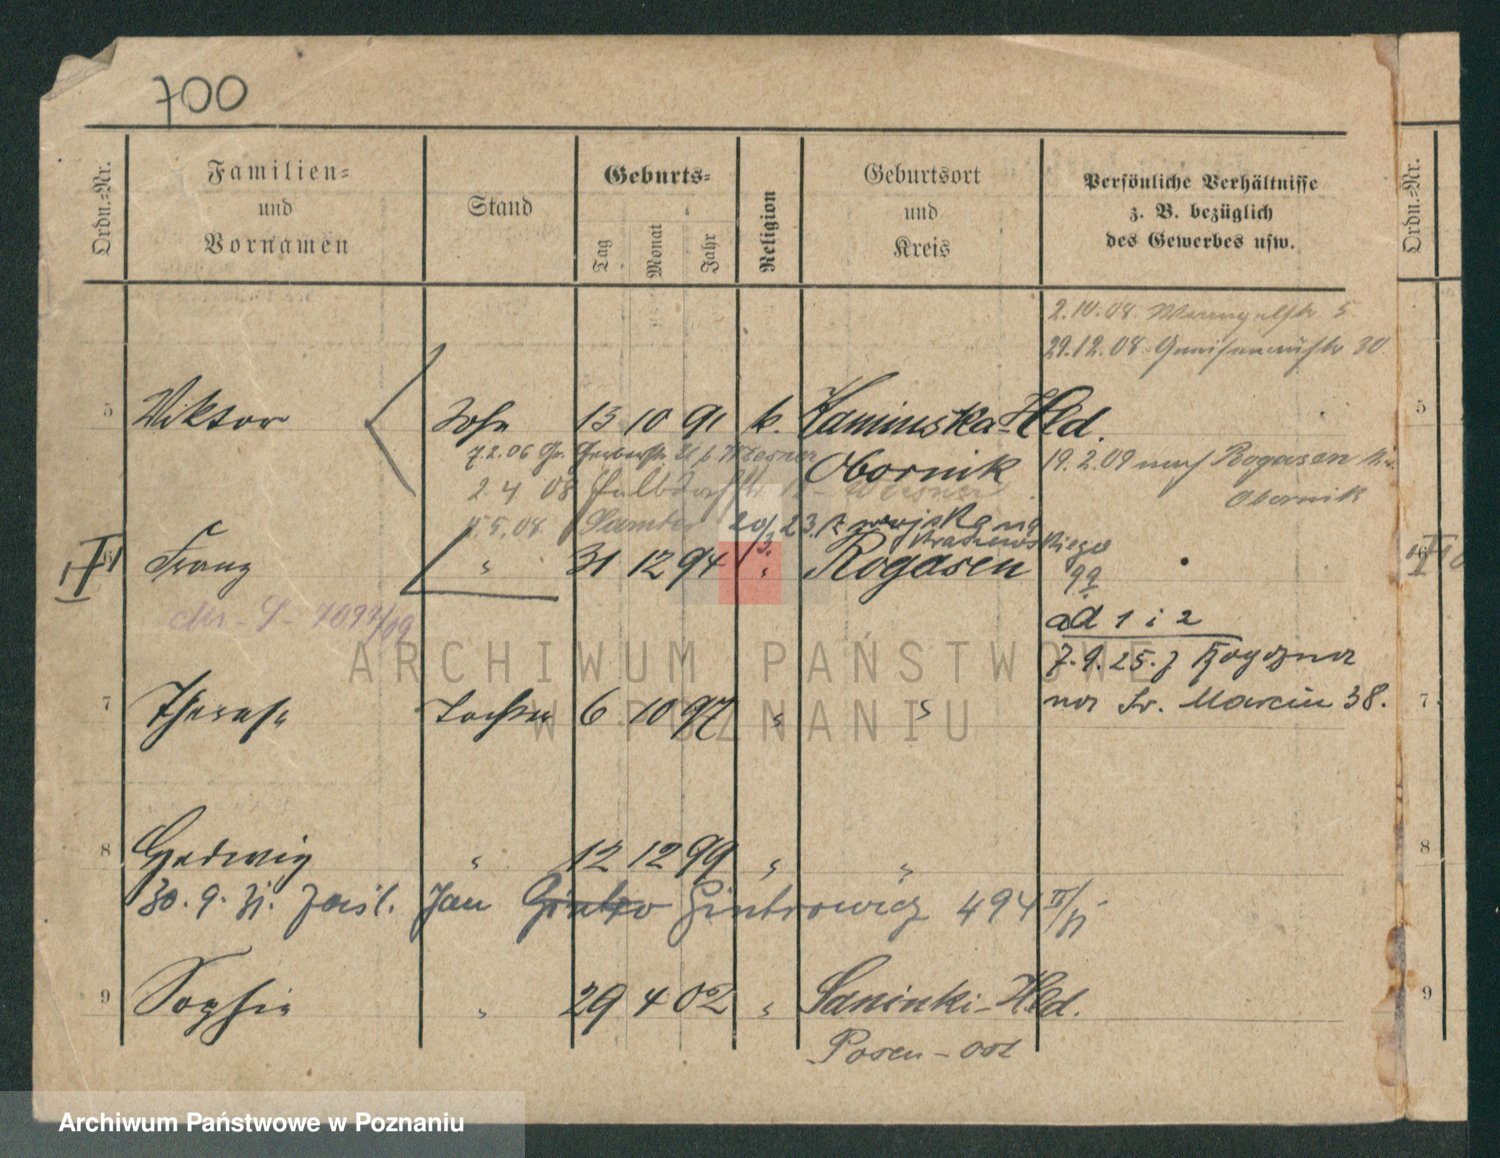 700
Ordn.-Nr.
Familien-
und
Vornamen
Stand
Geburts-
Tag
Monat
Jahr
Religion
Geburtsort
und
Kreis
Persönliche Verhältnisse
z. B. bezüglich
des Gewerbes usw.
Ordn.-Nr.
2.10.08 5
29.12.08 Gneisenaustr 30
5 Viktor Sohn 13 10 91 k. Kaminska-Hld. 5
7.2.06 Gr. Gerberstr
Obornik 19.2.09 nach Rogasen Kr.
2 4 08
Obornik
5.08 20/23 z wojska na
Kraszewskiego
6 Franz " 31 12 94 " Rogasen
9a
ad 1 i 2
7.9.25. z Rogozna
7 Therese Tochter 6 10 97 " " na Św. Marcin 38. 7
8 Hedwig " 12 12 99 " " 8
30.9.31. zaśl. Jan Gintrowicz 494
9 Sophie " 29 4 02 " Saninki-Hld. 9
Posen-Ost
ARCHIWUM PAŃSTWOWE
W POZNANIU
Archiwum Państwowe w Poznaniu